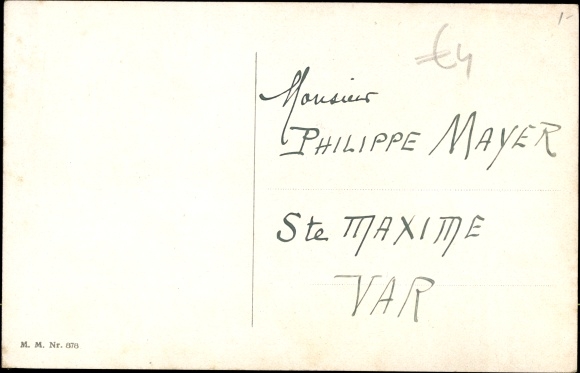 1-
€4
Monsieur
PHILIPPE MAYER
Ste MAXIME
VAR
M. M. Nr. 878